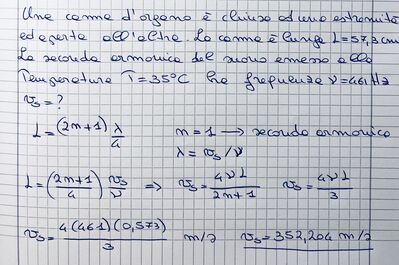 Una canna d'organo è chiusa ad una estremità
ed aperta all'altra. La canna è lunga L=57,3 cm
La seconda armonica del suono emesso alla
Temperatura T=35°C ha frequenza ν=461 Hz
v_s=?
L=(2n+1)λ/4 n=1 → seconda armonica
λ=v_s/ν
L=((2n+1)/4) v_s/ν ⇒ v_s=4νL/(2n+1) v_s=4νL/3
v_s=4(461)(0,573)/3 m/s v_s=352,204 m/s